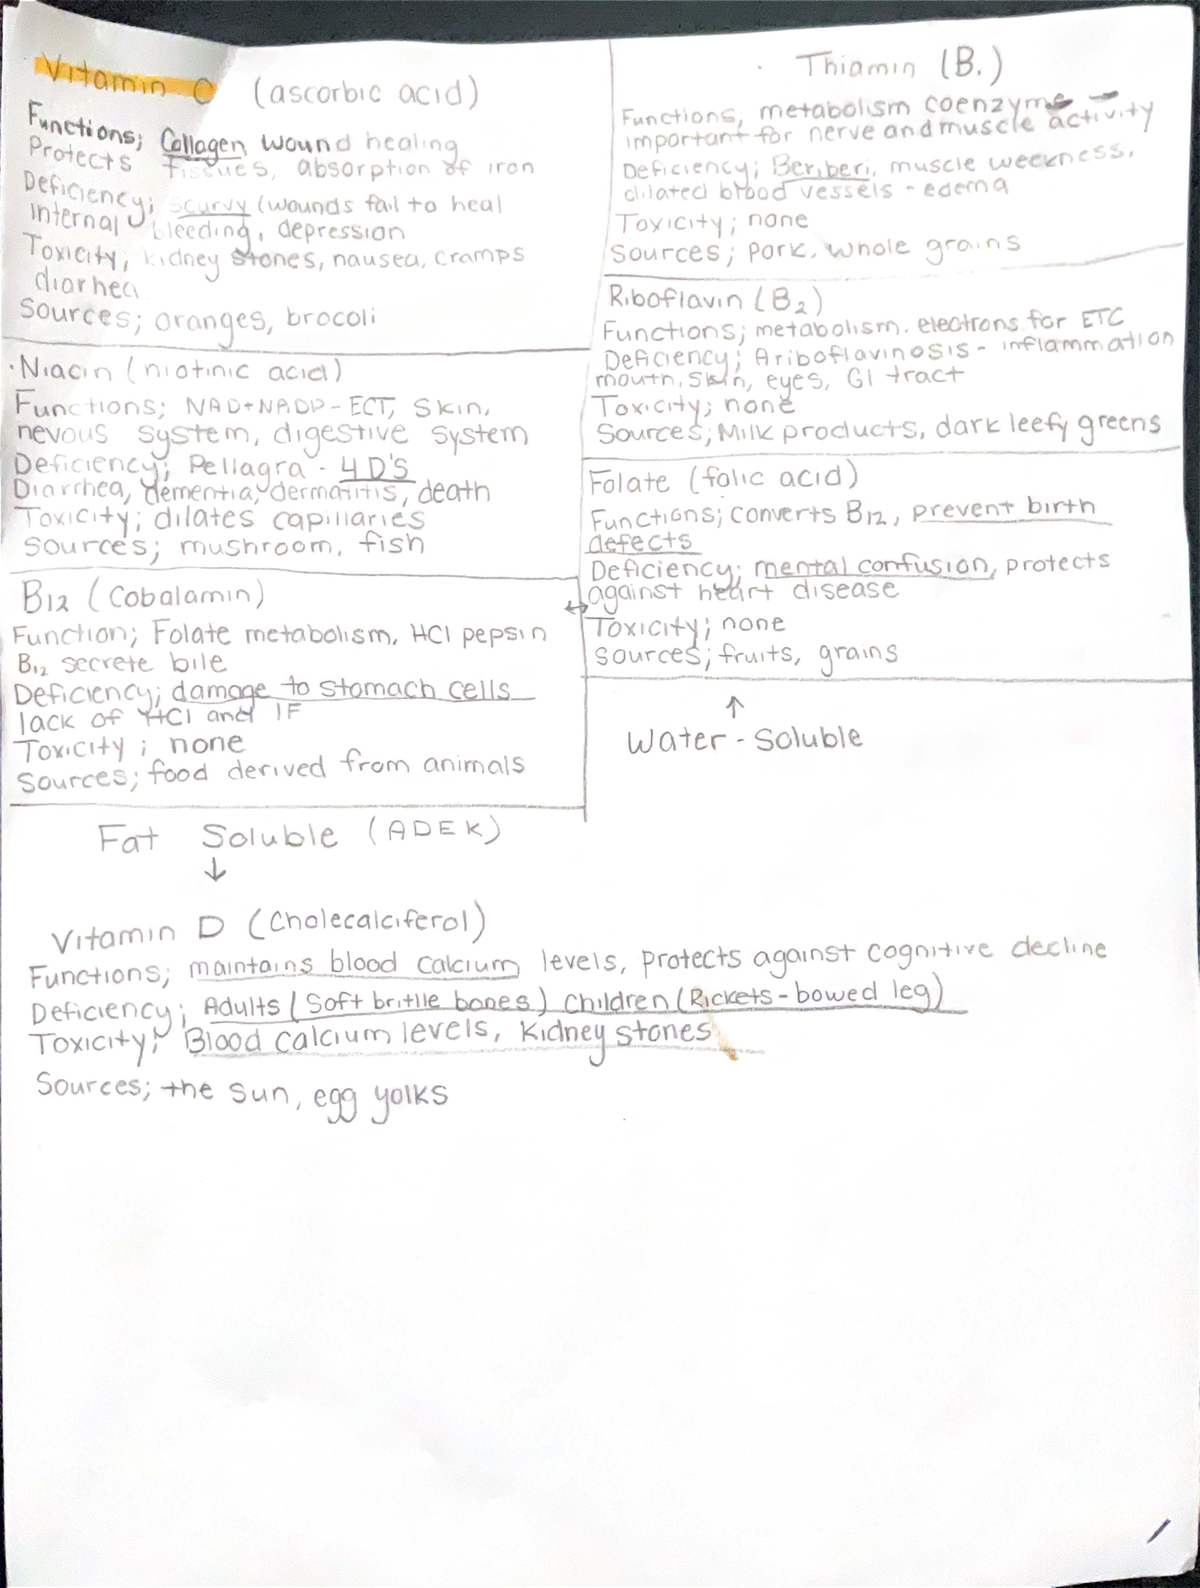 Vitamin C (ascorbic acid)
Functions; Collagen, wound healing
Protects tissues, absorption of iron
Deficiency; scurvy (wounds fail to heal
Internal bleeding, depression
Toxicity; kidney stones, nausea, cramps
diarhea
Sources; oranges, brocoli
Thiamin (B1)
Functions, metabolism coenzyme
important for nerve and muscle activity
Deficiency; Beriberi, muscle weekness,
dilated blood vessels - edema
Toxicity; none
Sources; pork, whole grains
Riboflavin (B2)
Functions; metabolism, electrons for ETC
Deficiency; Ariboflavinosis - inflammation
mouth, skin, eyes, GI tract
Toxicity; none
Sources; Milk products, dark leefy greens
·Niacin (niotinic acid)
Functions; NAD+NADP - ECT, skin,
nevous system, digestive system
Deficiency; Pellagra - 4 D'S
Diarrhea, dementia, dermatitis, death
Toxicity; dilates capillaries
Sources; mushroom, fish
Folate (folic acid)
Functions; converts B12, prevent birth
defects
Deficiency; mental confusion, protects
against heart disease
Toxicity; none
Sources; fruits, grains
B12 (Cobalamin)
Function; Folate metabolism, HCl pepsin
B12 secrete bile
Deficiency; damage to stomach cells
lack of HCl and IF
Toxicity; none
Sources; food derived from animals
↑
Water - Soluble
Fat Soluble (ADEK)
↓
Vitamin D (Cholecalciferol)
Functions; maintains blood calcium levels, protects against cognitive decline
Deficiency; Adults (Soft britlle bones) Children (Rickets - bowed leg)
Toxicity; Blood calcium levels, Kidney stones
Sources; the sun, egg yolks